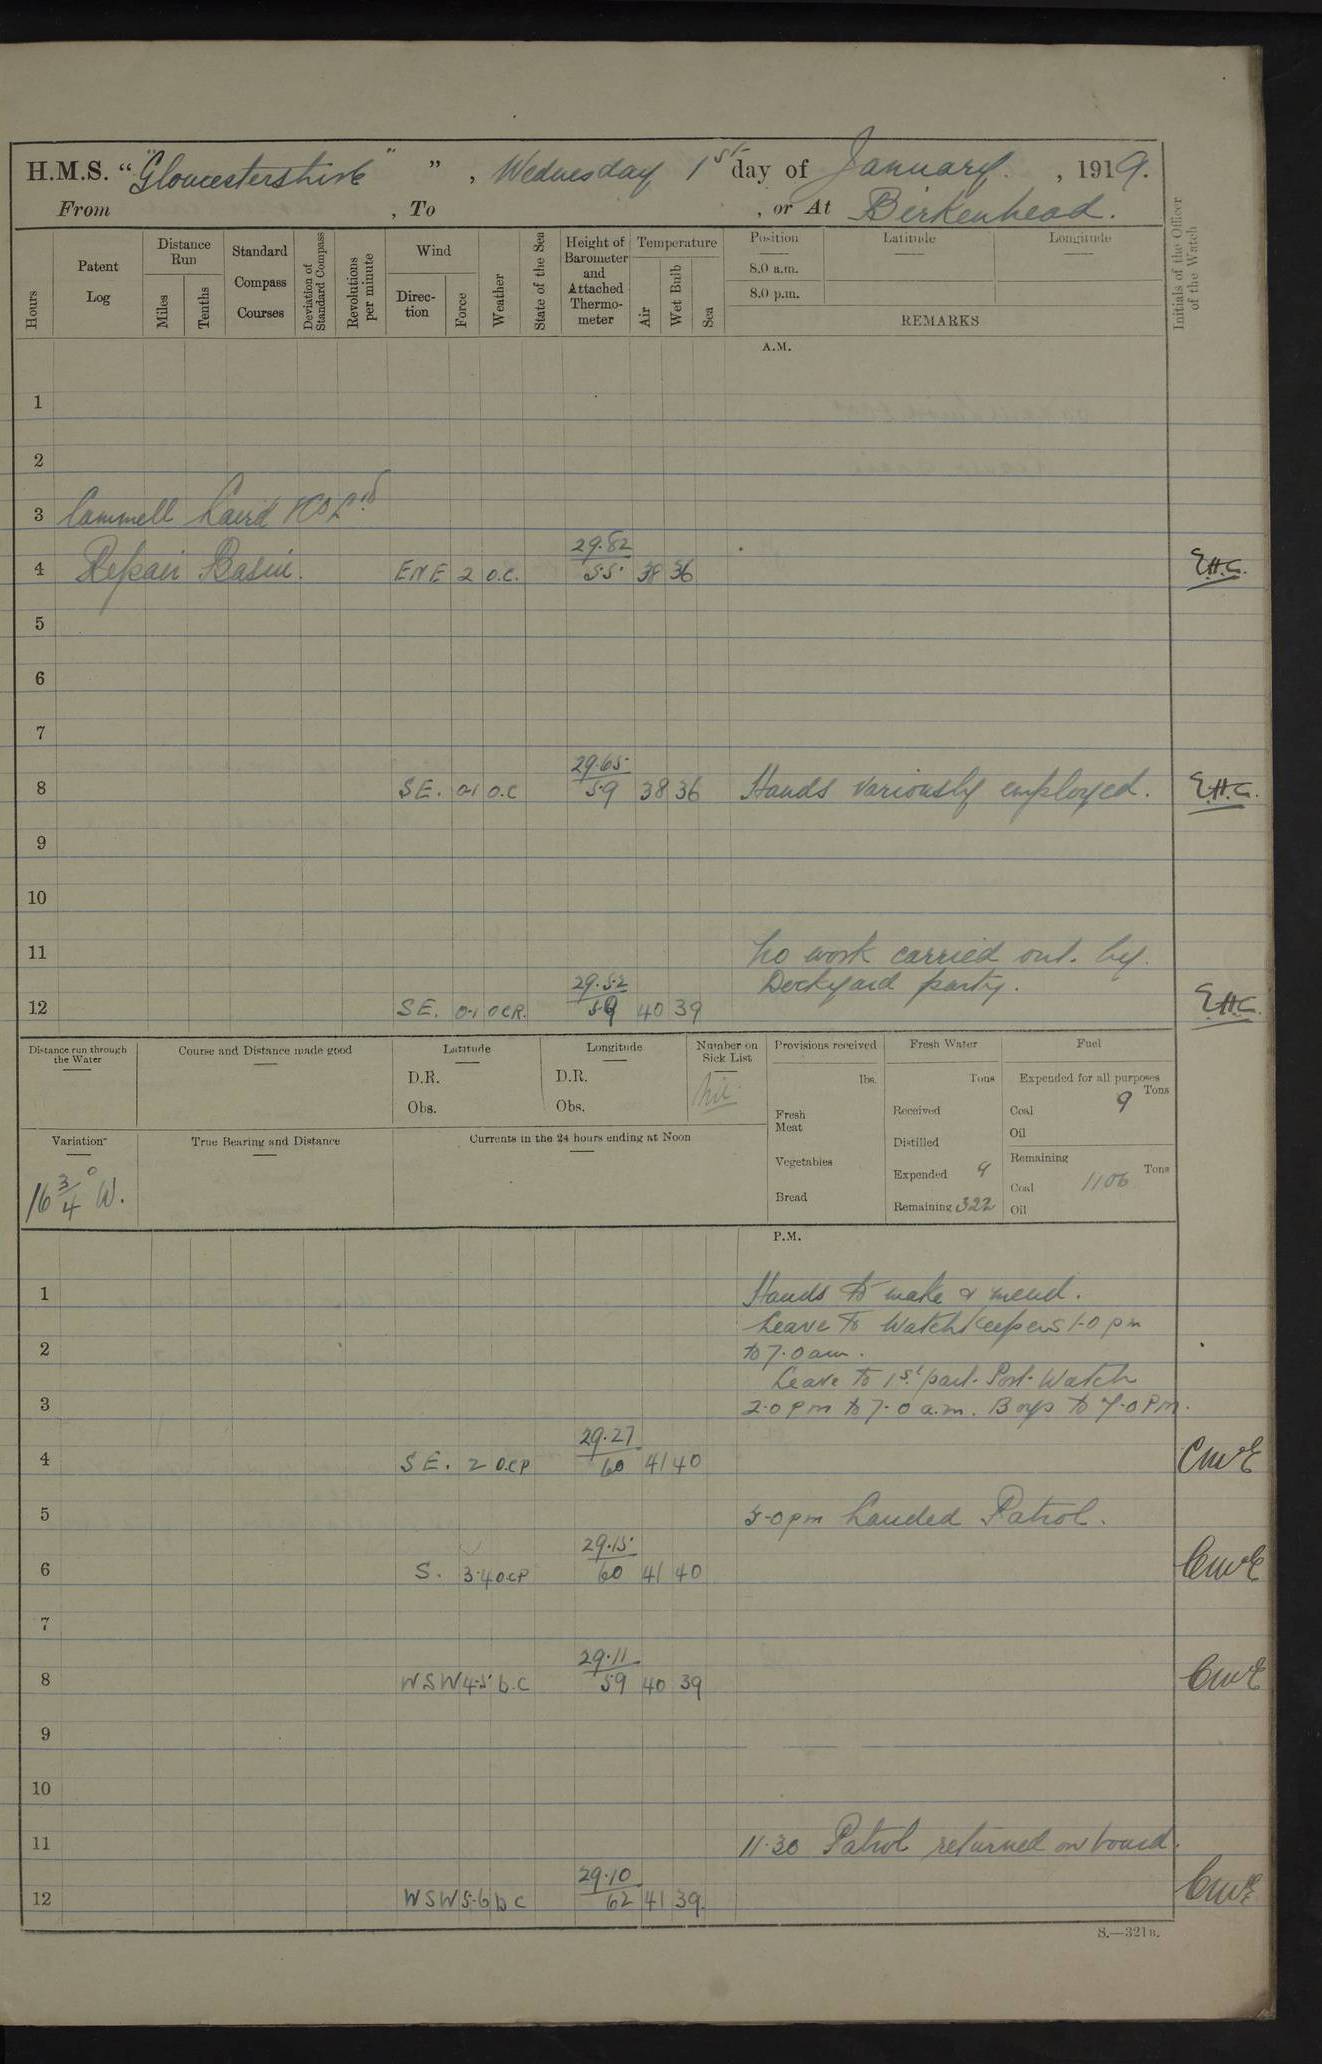 H.M.S. “ "Gloucestershire" ” , Wednesday 1st day of January , 1919.
From , To , or At Birkenhead.
Hours
Patent Log
Distance Run
Miles
Tenths
Standard Compass Courses
Deviation of Standard Compass
Revolutions per minute
Wind
Direc-tion
Force
Weather
State of the Sea
Height of Barometer and Attached Thermo-meter
Temperature
Air
Wet Bulb
Sea
Position Latitude Longitude
8.0 a.m.
8.0 p.m.
REMARKS
Initials of the Officer of the Watch
A.M.
1
2
3 Cammell Laird & Co Ltd
29.82
4 Repair Basin. ENE 2 O.C. 55 38 36 E.H.C.
5
6
7
29.65
8 SE. 0-1 O.C 59 38 36 Hands variously employed. E.H.C.
9
10
11 No work carried out. by.
29.52 Dockyard party.
12 SE. 0-1 OCR. 59 40 39 E.H.C.
Distance run through the Water
Course and Distance made good
Latitude
D.R.
Obs.
Longitude
D.R.
Obs.
Number on Sick List
Nil
Provisions received
lbs.
Fresh Meat
Vegetables
Bread
Fresh Water
Tons
Received
Distilled
Expended 9
Remaining 322
Fuel
Expended for all purposes
Tons
Coal 9
Oil
Remaining
Tons
Coal 1106
Oil
Variation
16 3/4° W.
True Bearing and Distance
Currents in the 24 hours ending at Noon
P.M.
1 Hands to make & mend.
Leave to Watchkeepers 1-0 pm
2 to 7.0 am.
Leave to 1st part. Port. Watch
3 2.0 pm to 7.0 a.m. Boys to 7.0 Pm.
29.27
4 SE. 2 O.C.P 60 41 40 CWE
5 5-0 pm Landed Patrol.
29.15
6 S. 3.4 O.C.P 60 41 40 CWE
7
29.11
8 WSW 4-5 b.c 59 40 39 CWE
9
10
11 11.30 Patrol returned on board.
29.10
12 WSW 5-6 b c 62 41 39. CWE
S.—321B.